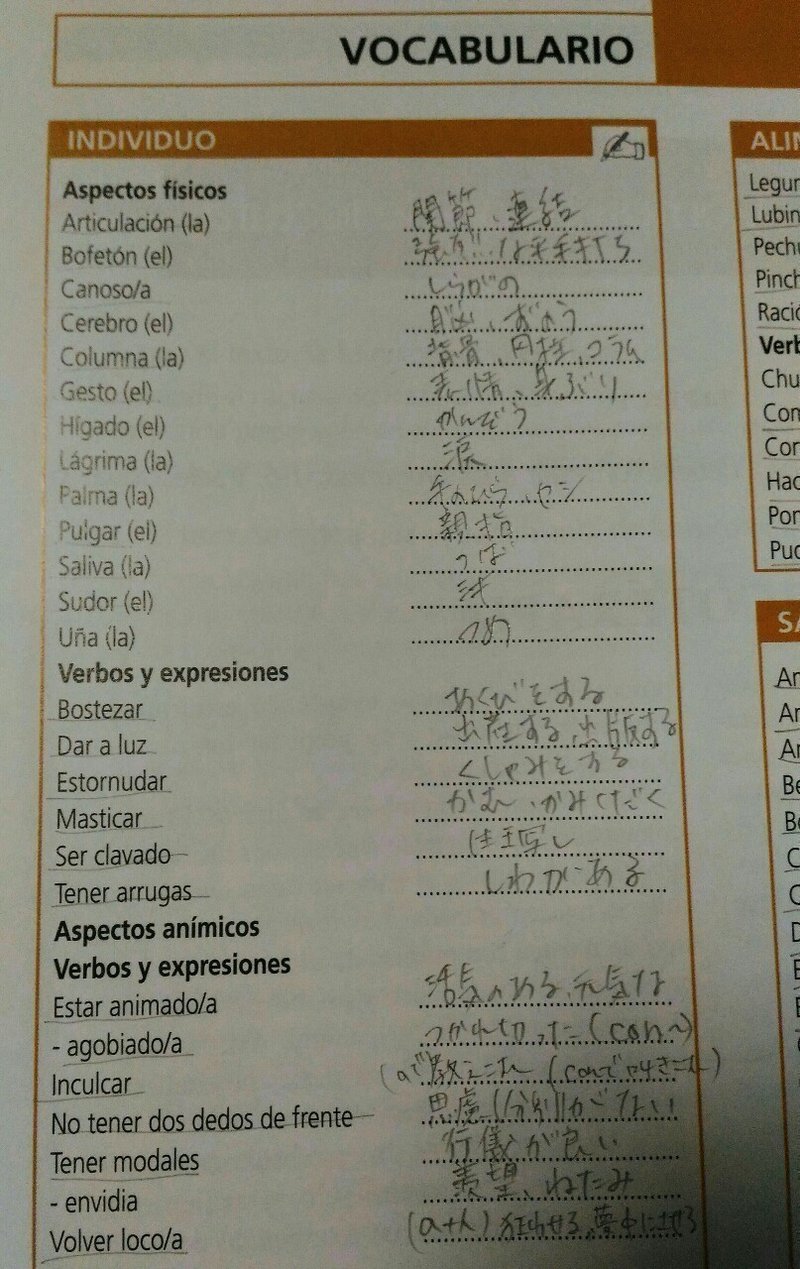 VOCABULARIO
INDIVIDUO
Aspectos físicos
Articulación (la) 関節、連結
Bofetón (el) 強い平手打ち
Canoso/a しらがの
Cerebro (el) 脳、ずのう
Columna (la) 背骨、円柱、コラム
Gesto (el) 表情、身ぶり
Hígado (el) かんぞう
Lágrima (la) 涙
Palma (la) 手のひら、ヤシ
Pulgar (el) 親指
Saliva (la) つば
Sudor (el) 汗
Uña (la) つめ
Verbos y expresiones
Bostezar あくびをする
Dar a luz 出産する、出版する
Estornudar くしゃみをする
Masticar かむ、かみくだく
Ser clavado 生写し
Tener arrugas しわがある
Aspectos anímicos
Verbos y expresiones
Estar animado/a 活気のある、元気な
- agobiado/a つかれ切った (con〜)
Inculcar
No tener dos dedos de frente 思慮(分別)がない
Tener modales 行儀が良い
- envidia 羨望、ねたみ
Volver loco/a (a+人) 狂わせる、夢中にさせる
ALIM
Legum
Lubin
Pech
Pinch
Ració
Verb
Chu
Com
Cor
Hac
Pon
Pud
SA
An
An
An
Be